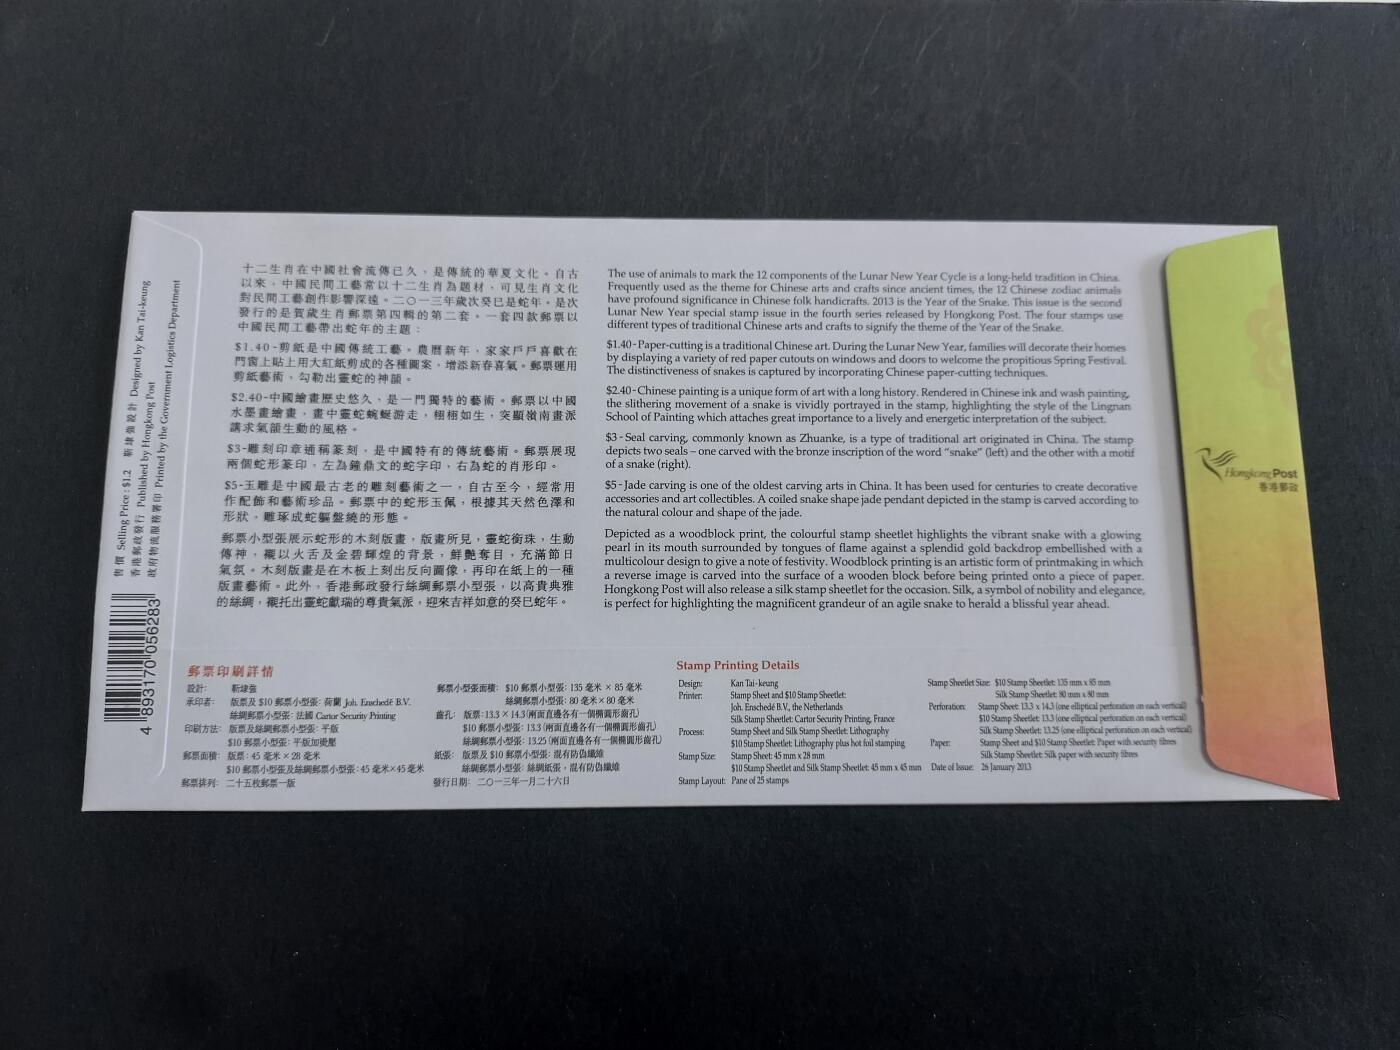 十二生肖在中國社會流傳已久，是傳統的華夏文化。自古
以來，中國民間工藝常以十二生肖為題材，可見生肖文化
對民間工藝創作影響深遠。二〇一三年歲次癸巳是蛇年。是次
發行的是賀歲生肖郵票第四輯的第二套。一套四款郵票以
中國民間工藝帶出蛇年的主題：
$1.40-剪紙是中國傳統工藝。農曆新年，家家戶戶喜歡在
門窗上貼上用大紅紙剪成的各種圖案，增添新春喜氣。郵票運用
剪紙藝術，勾勒出靈蛇的神韻。
$2.40-中國繪畫歷史悠久，是一門獨特的藝術。郵票以中國
水墨畫繪畫，畫中靈蛇蜿蜒游走，栩栩如生，突顯嶺南畫派
講求氣韻生動的風格。
$3-雕刻印章通稱篆刻，是中國特有的傳統藝術。郵票展現
兩個蛇形篆印，左為鐘鼎文的蛇字印，右為蛇的肖形印。
$5-玉雕是中國最古老的雕刻藝術之一，自古至今，經常用
作配飾和藝術珍品。郵票中的蛇形玉佩，根據其天然色澤和
形狀，雕琢成蛇軀盤繞的形態。
郵票小型張展示蛇形的木刻版畫，版畫所見，靈蛇銜珠，生動
傳神，襯以火舌及金碧輝煌的背景，鮮艷奪目，充滿節日
氣氛。木刻版畫是在木板上刻出反向圖像，再印在紙上的一種
版畫藝術。此外，香港郵政發行絲綢郵票小型張，以高貴典雅
的絲綢，襯托出靈蛇獻瑞的尊貴氣派，迎來吉祥如意的癸巳蛇年。
The use of animals to mark the 12 components of the Lunar New Year Cycle is a long-held tradition in China.
Frequently used as the theme for Chinese arts and crafts since ancient times, the 12 Chinese zodiac animals
have profound significance in Chinese folk handicrafts. 2013 is the Year of the Snake. This issue is the second
Lunar New Year special stamp issue in the fourth series released by Hongkong Post. The four stamps use
different types of traditional Chinese arts and crafts to signify the theme of the Year of the Snake.
$1.40 - Paper-cutting is a traditional Chinese art. During the Lunar New Year, families will decorate their homes
by displaying a variety of red paper cutouts on windows and doors to welcome the propitious Spring Festival.
The distinctiveness of snakes is captured by incorporating Chinese paper-cutting techniques.
$2.40 - Chinese painting is a unique form of art with a long history. Rendered in Chinese ink and wash painting,
the slithering movement of a snake is vividly portrayed in the stamp, highlighting the style of the Lingnan
School of Painting which attaches great importance to a lively and energetic interpretation of the subject.
$3 - Seal carving, commonly known as Zhuanke, is a type of traditional art originated in China. The stamp
depicts two seals – one carved with the bronze inscription of the word "snake" (left) and the other with a motif
of a snake (right).
$5 - Jade carving is one of the oldest carving arts in China. It has been used for centuries to create decorative
accessories and art collectibles. A coiled snake shape jade pendant depicted in the stamp is carved according to
the natural colour and shape of the jade.
Depicted as a woodblock print, the colourful stamp sheetlet highlights the vibrant snake with a glowing
pearl in its mouth surrounded by tongues of flame against a splendid gold backdrop embellished with a
multicolour design to give a note of festivity. Woodblock printing is an artistic form of printmaking in which
a reverse image is carved into the surface of a wooden block before being printed onto a piece of paper.
Hongkong Post will also release a silk stamp sheetlet for the occasion. Silk, a symbol of nobility and elegance,
is perfect for highlighting the magnificent grandeur of an agile snake to herald a blissful year ahead.
售價 Selling Price : $1.2 靳埭強設計 Designed by Kan Tai-keung
香港郵政發行 Published by Hongkong Post
政府物流服務署印 Printed by the Government Logistics Department
4 893170 056283
Hongkong Post
香港郵政
郵票印刷詳情
設計： 靳埭強
承印者： 版票及 $10 郵票小型張：荷蘭 Joh. Enschedé B.V.
絲綢郵票小型張：法國 Cartor Security Printing
印刷方法： 版票及絲綢郵票小型張：平版
$10 郵票小型張：平版加燙壓
郵票面積： 版票：45 毫米 × 28 毫米
$10 郵票小型張及絲綢郵票小型張：45 毫米×45 毫米
郵票排列： 二十五枚郵票一版
郵票小型張面積： $10 郵票小型張：135 毫米 × 85 毫米
絲綢郵票小型張：80 毫米×80 毫米
齒孔： 版票：13.3 × 14.3 (兩面直邊各有一個橢圓形齒孔)
$10 郵票小型張：13.3 (兩面直邊各有一個橢圓形齒孔)
絲綢郵票小型張：13.25 (兩面直邊各有一個橢圓形齒孔)
紙張： 版票及 $10 郵票小型張：混有防偽纖維
絲綢郵票小型張：絲綢紙張，混有防偽纖維
發行日期： 二〇一三年一月二十六日
Stamp Printing Details
Design: Kan Tai-keung
Printer: Stamp Sheet and $10 Stamp Sheetlet:
Joh. Enschedé B.V., the Netherlands
Silk Stamp Sheetlet: Cartor Security Printing, France
Process: Stamp Sheet and Silk Stamp Sheetlet: Lithography
$10 Stamp Sheetlet: Lithography plus hot foil stamping
Stamp Size: Stamp Sheet: 45 mm x 28 mm
$10 Stamp Sheetlet and Silk Stamp Sheetlet: 45 mm x 45 mm
Stamp Layout: Pane of 25 stamps
Stamp Sheetlet Size: $10 Stamp Sheetlet: 135 mm x 85 mm
Silk Stamp Sheetlet: 80 mm x 80 mm
Perforation: Stamp Sheet: 13.3 x 14.3 (one elliptical perforation on each vertical)
$10 Stamp Sheetlet: 13.3 (one elliptical perforation on each vertical)
Silk Stamp Sheetlet: 13.25 (one elliptical perforation on each vertical)
Paper: Stamp Sheet and $10 Stamp Sheetlet: Paper with security fibres
Silk Stamp Sheetlet: Silk paper with security fibres
Date of Issue: 26 January 2013